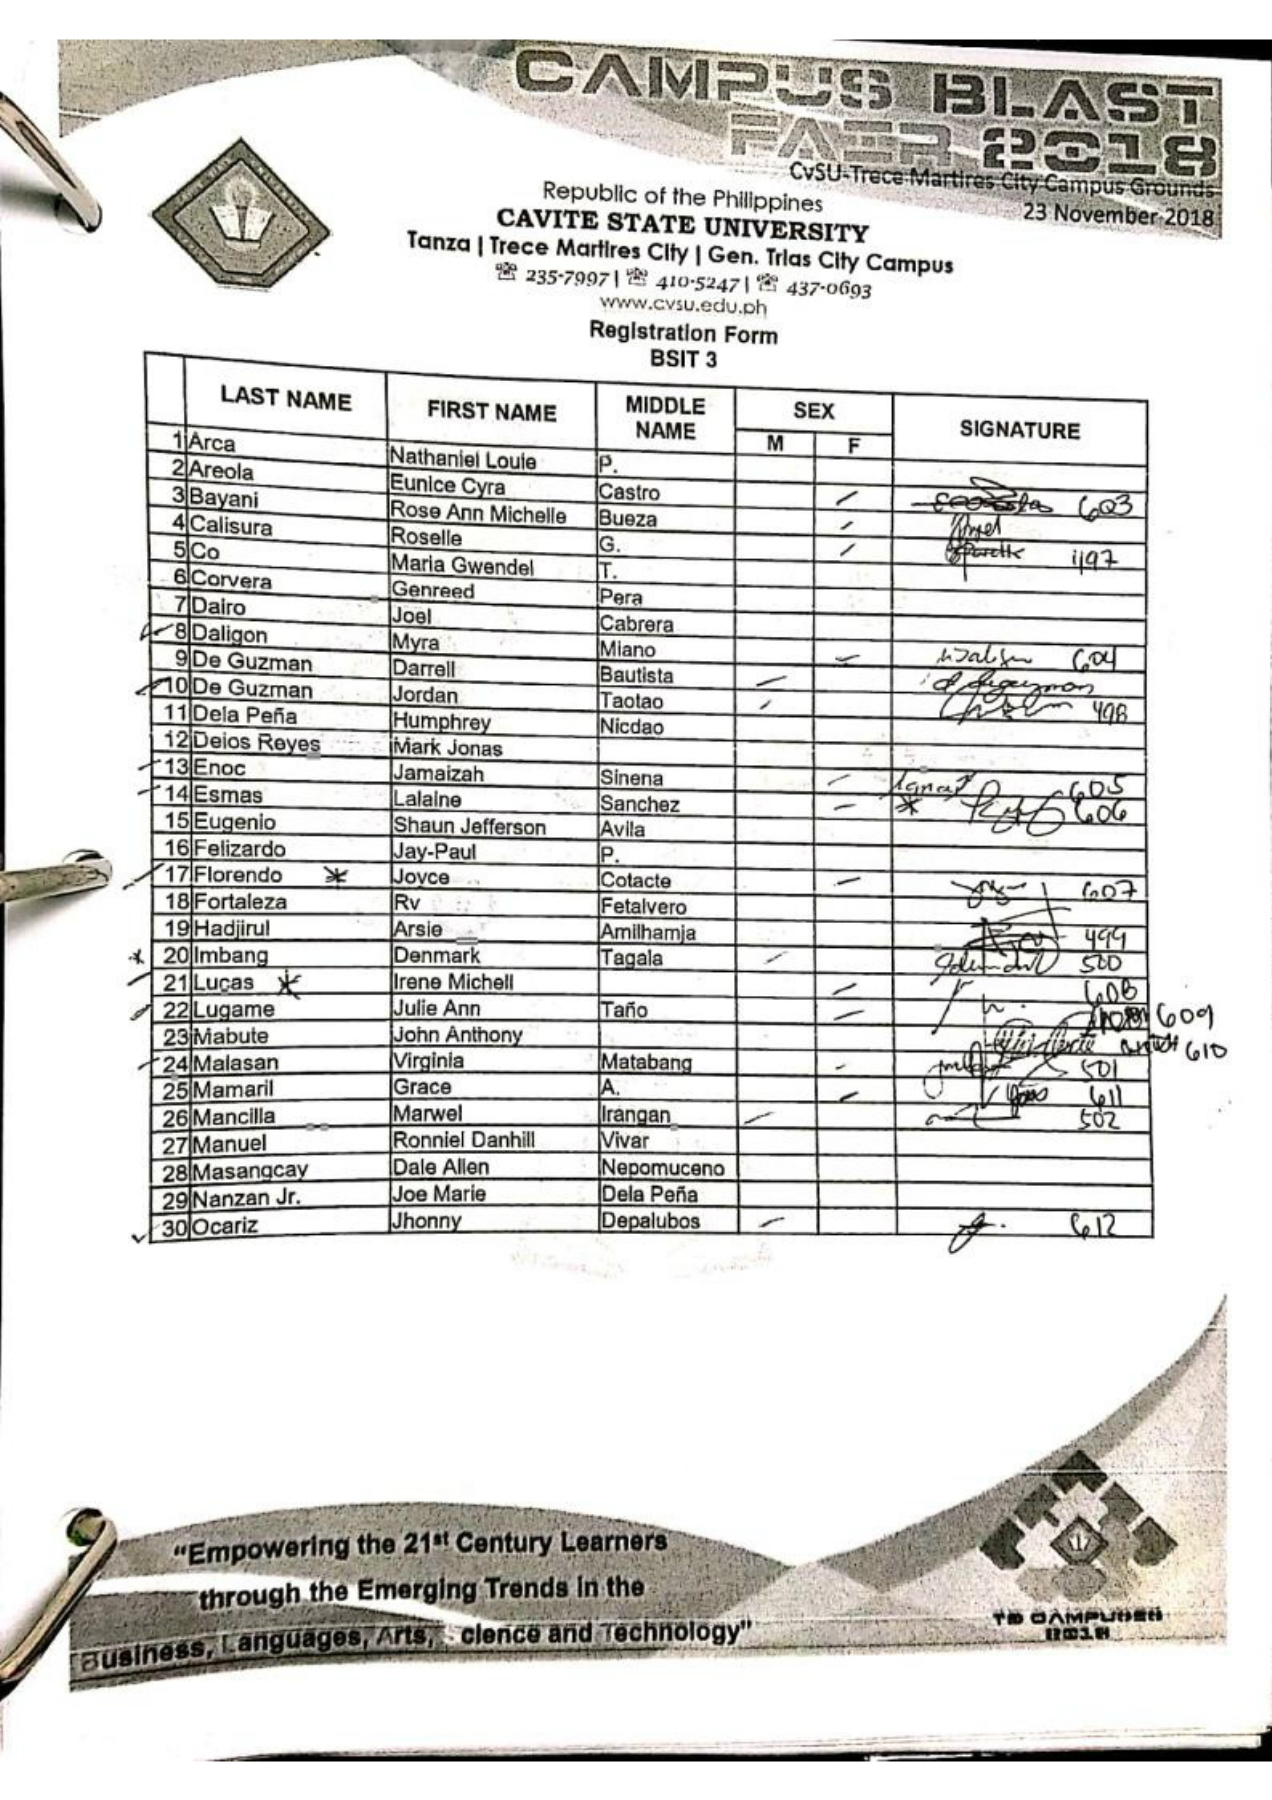 CAMPUS BLAST
FAIR 2018
CvSU-Trece Martires City Campus Grounds
23 November 2018
Republic of the Philippines
CAVITE STATE UNIVERSITY
Tanza | Trece Martires City | Gen. Trias City Campus
☏ 235-7997 | ☏ 410-5247 | ☏ 437-0693
www.cvsu.edu.ph
Registration Form
BSIT 3
LAST NAME FIRST NAME MIDDLE NAME SEX SIGNATURE
M F
1 Arca Nathaniel Louie P.
2 Areola Eunice Cyra Castro 603
3 Bayani Rose Ann Michelle Bueza
4 Calisura Roselle G. 1197
5 Co Maria Gwendel T.
6 Corvera Genreed Pera
7 Dairo Joel Cabrera
8 Daligon Myra Miano 604
9 De Guzman Darrell Bautista
10 De Guzman Jordan Taotao 498
11 Dela Peña Humphrey Nicdao
12 Delos Reyes Mark Jonas
13 Enoc Jamaizah Sinena 605
14 Esmas Lalaine Sanchez 606
15 Eugenio Shaun Jefferson Avila
16 Felizardo Jay-Paul P.
17 Florendo Joyce Cotacte 607
18 Fortaleza Rv Fetalvero
19 Hadjirul Arsie Amilhamja 499
20 Imbang Denmark Tagala 500
21 Lucas Irene Michell 608
22 Lugame Julie Ann Taño 609
23 Mabute John Anthony 610
24 Malasan Virginia Matabang 501
25 Mamaril Grace A. 611
26 Mancilla Marwel Irangan 502
27 Manuel Ronniel Danhill Vivar
28 Masangcay Dale Allen Nepomuceno
29 Nanzan Jr. Joe Marie Dela Peña
30 Ocariz Jhonny Depalubos 612
"Empowering the 21st Century Learners
through the Emerging Trends in the
Business, Languages, Arts, Science and Technology"
T3 CAMPUSES
2018